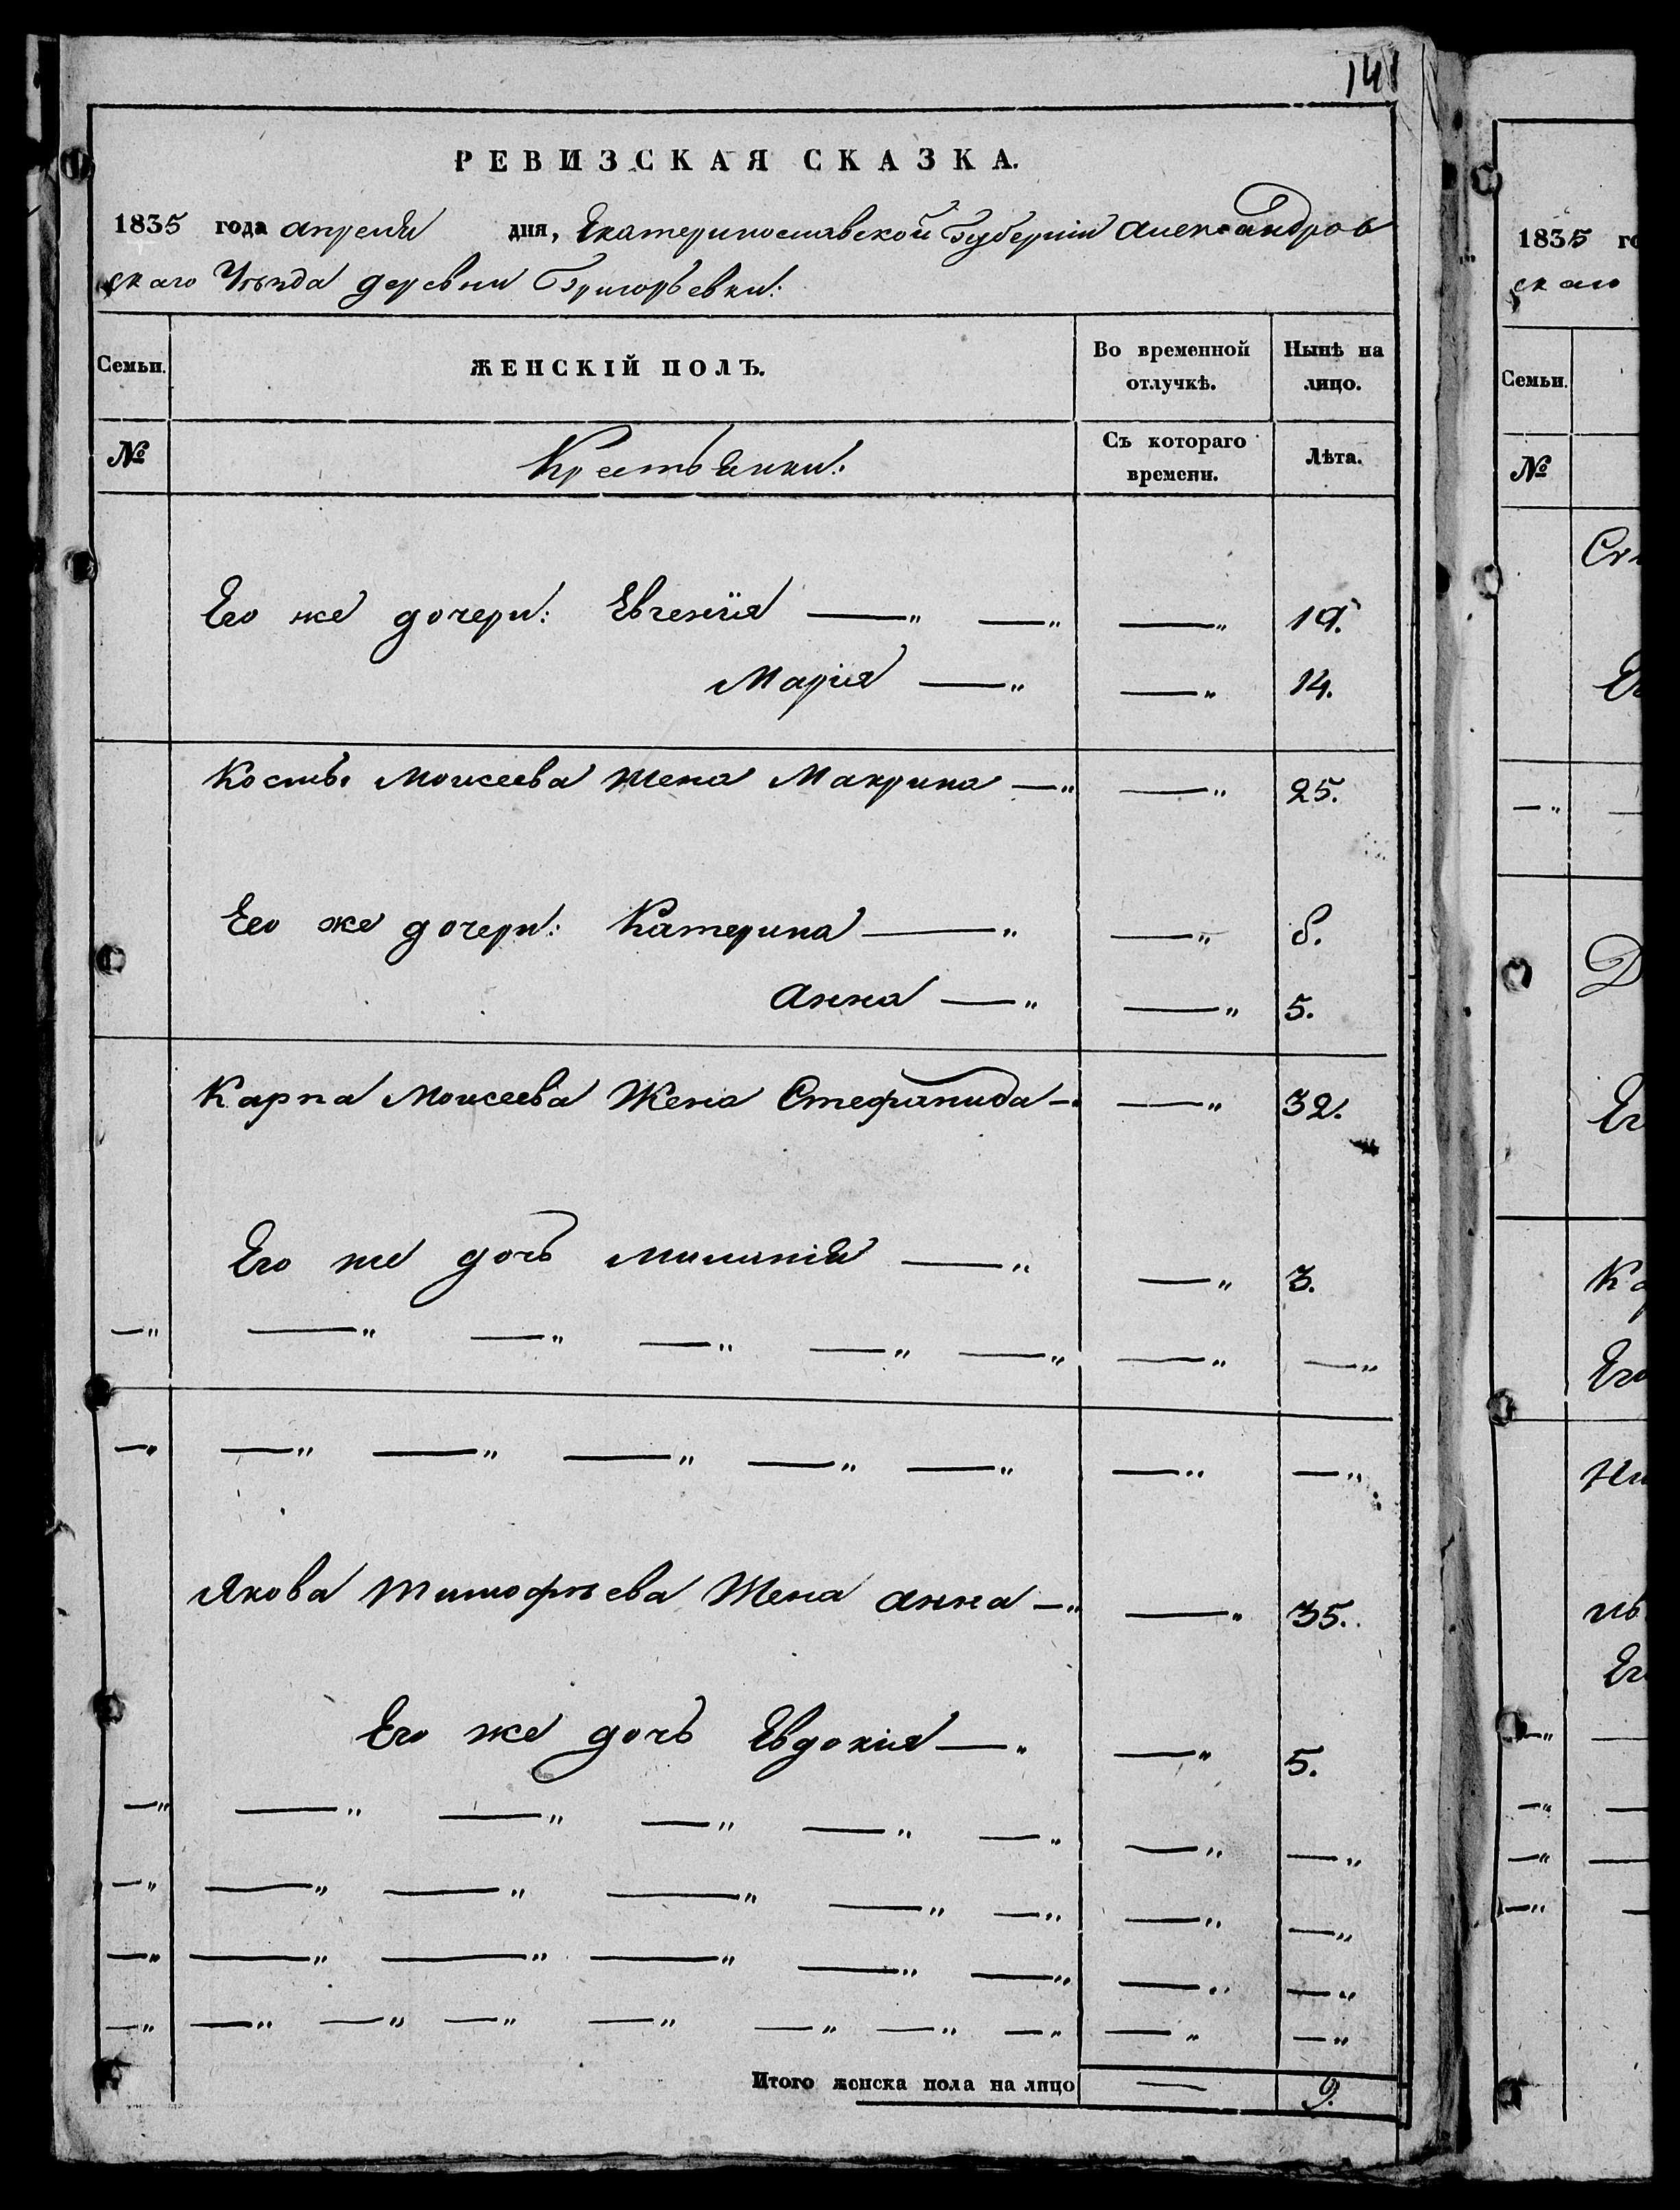 141
РЕВИЗСКАЯ СКАЗКА.
1835 года апреля дня, Екатеринославской Губернии Александров
скаго Уѣзда деревни Григорьевки:
Семьи. ЖЕНСКІЙ ПОЛЪ. Во временной отлучкѣ. Нынѣ на лицо.
№ Крестьянки: Съ котораго времени. Лѣта.
Его же дочери: Евгенія —„ —„ —„ 19.
Марія —„ —„ 14.
Моисеева жена Макрина —„ —„ 25.
Его же дочери: Катерина —„ —„ 8.
Анна —„ —„ 5.
Карпа Моисеева Жена Стефанида —„ —„ 32.
Его же дочь Миланія —„ —„ 3.
—„ —„ —„ —„ —„ —„ —„ —„
—„ —„ —„ —„ —„ —„ —„ —„
Якова Тимофѣева Жена Анна —„ —„ 35.
Его же дочь Евдокия —„ —„ 5.
—„ —„ —„ —„ —„ —„ —„ —„
—„ —„ —„ —„ —„ —„ —„ —„
—„ —„ —„ —„ —„ —„ —„ —„
—„ —„ —„ —„ —„ —„ —„ —„ —„ —„
Итого женска пола на лицо — 9.
1835 го
скаго
Семьи.
№